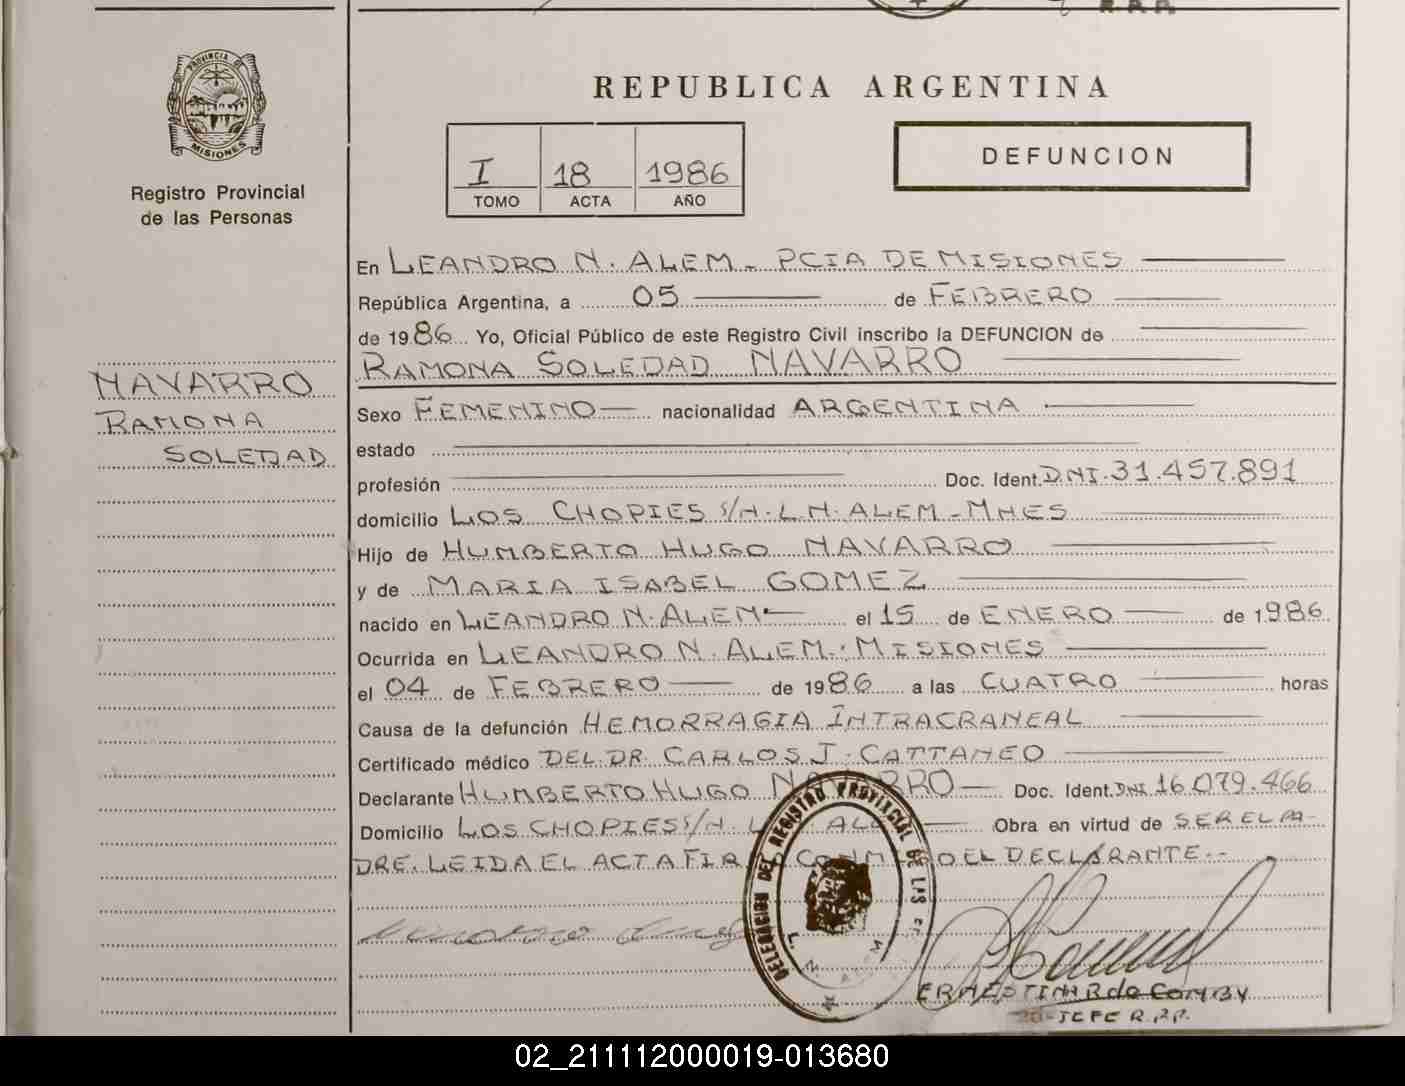 PROVINCIA DE
MISIONES
Registro Provincial
de las Personas
REPUBLICA ARGENTINA
I 18 1986
TOMO ACTA AÑO
DEFUNCION
En LEANDRO N. ALEM - PCIA DE MISIONES
República Argentina, a 05 de FEBRERO
de 1986 Yo, Oficial Público de este Registro Civil inscribo la DEFUNCION de
RAMONA SOLEDAD NAVARRO
NAVARRO
RAMONA
SOLEDAD
Sexo FEMENINO nacionalidad ARGENTINA
estado
profesión Doc. Ident. DNI. 31.457.891
domicilio LOS CHOPIES S/N. L.N. ALEM - MNES
Hijo de HUMBERTO HUGO NAVARRO
y de MARIA ISABEL GOMEZ
nacido en LEANDRO N. ALEM el 15 de ENERO de 1986
Ocurrida en LEANDRO N. ALEM. MISIONES
el 04 de FEBRERO de 1986 a las CUATRO horas
Causa de la defunción HEMORRAGIA INTRACRANEAL
Certificado médico DEL DR. CARLOS J. CATTANEO
Declarante HUMBERTO HUGO NAVARRO Doc. Ident. DNI 16.079.466
Domicilio LOS CHOPIES S/N. L. N. ALEM Obra en virtud de SER EL PA-
DRE. LEIDA EL ACTA FIRMA CONMIGO EL DECLARANTE.-
DELEGACION DEL REGISTRO PROVINCIAL DE LAS
L. N. ALEM
ERNESTINA R de COMBY
JEFE R.P.P.
02_211112000019-013680